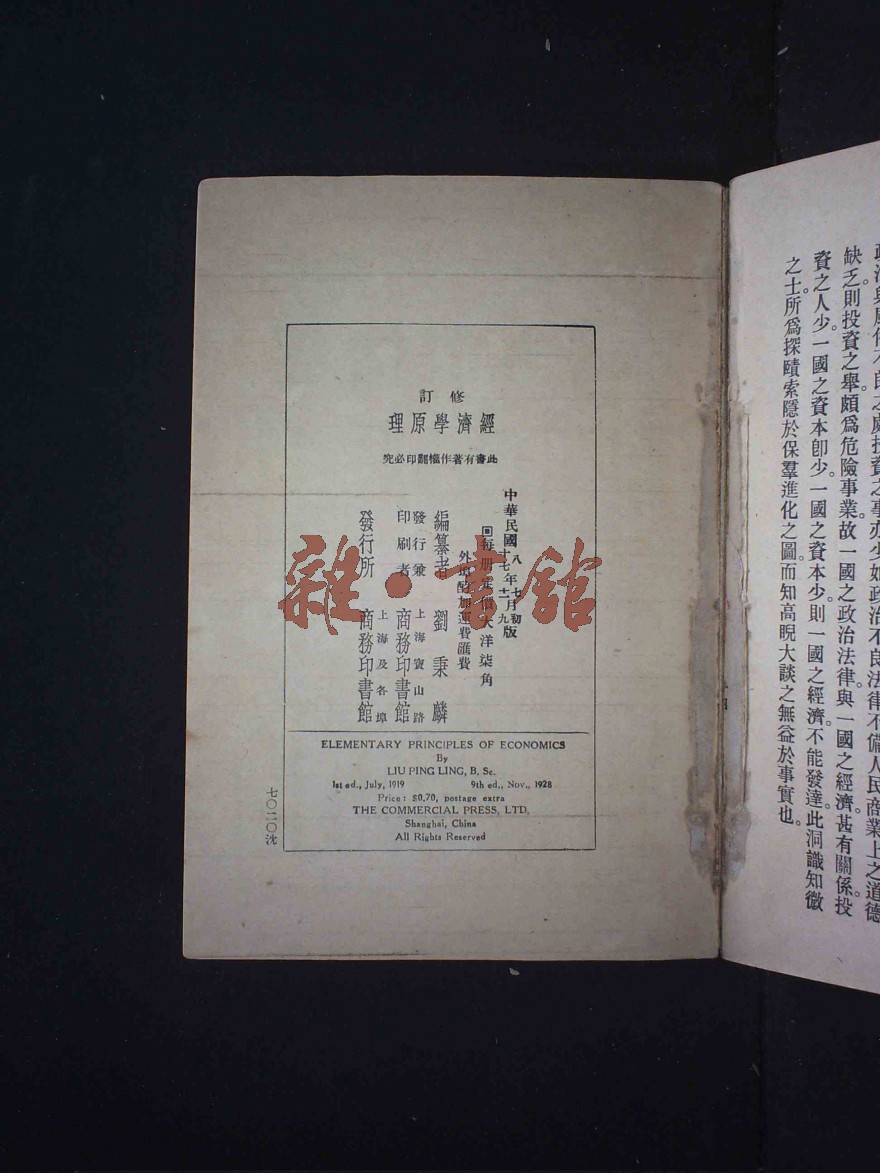 缺乏則投資之舉頗爲危險事業。故一國之政治法律與一國之經濟甚有關係。投
資之人少。一國之資本卽少。一國之資本少。則一國之經濟不能發達。此洞識知微
之士所爲探賾索隱於保羣進化之圖。而知高睨大談之無益於事實也。
修訂
經濟學原理
此書有著作權翻印必究
中華民國八年七月初版
十七年十一月九版
每册定價大洋柒角
外埠酌加運費匯費
編纂者 劉秉麟
發行兼印刷者 上海寶山路 商務印書館
發行所 上海及各埠 商務印書館
ELEMENTARY PRINCIPLES OF ECONOMICS
By
LIU PING LING, B. Sc.
1st ed., July, 1919 9th ed., Nov., 1928
Price: $0.70, postage extra
THE COMMERCIAL PRESS, LTD.
Shanghai, China
All Rights Reserved
七〇二〇沈
雜·書館